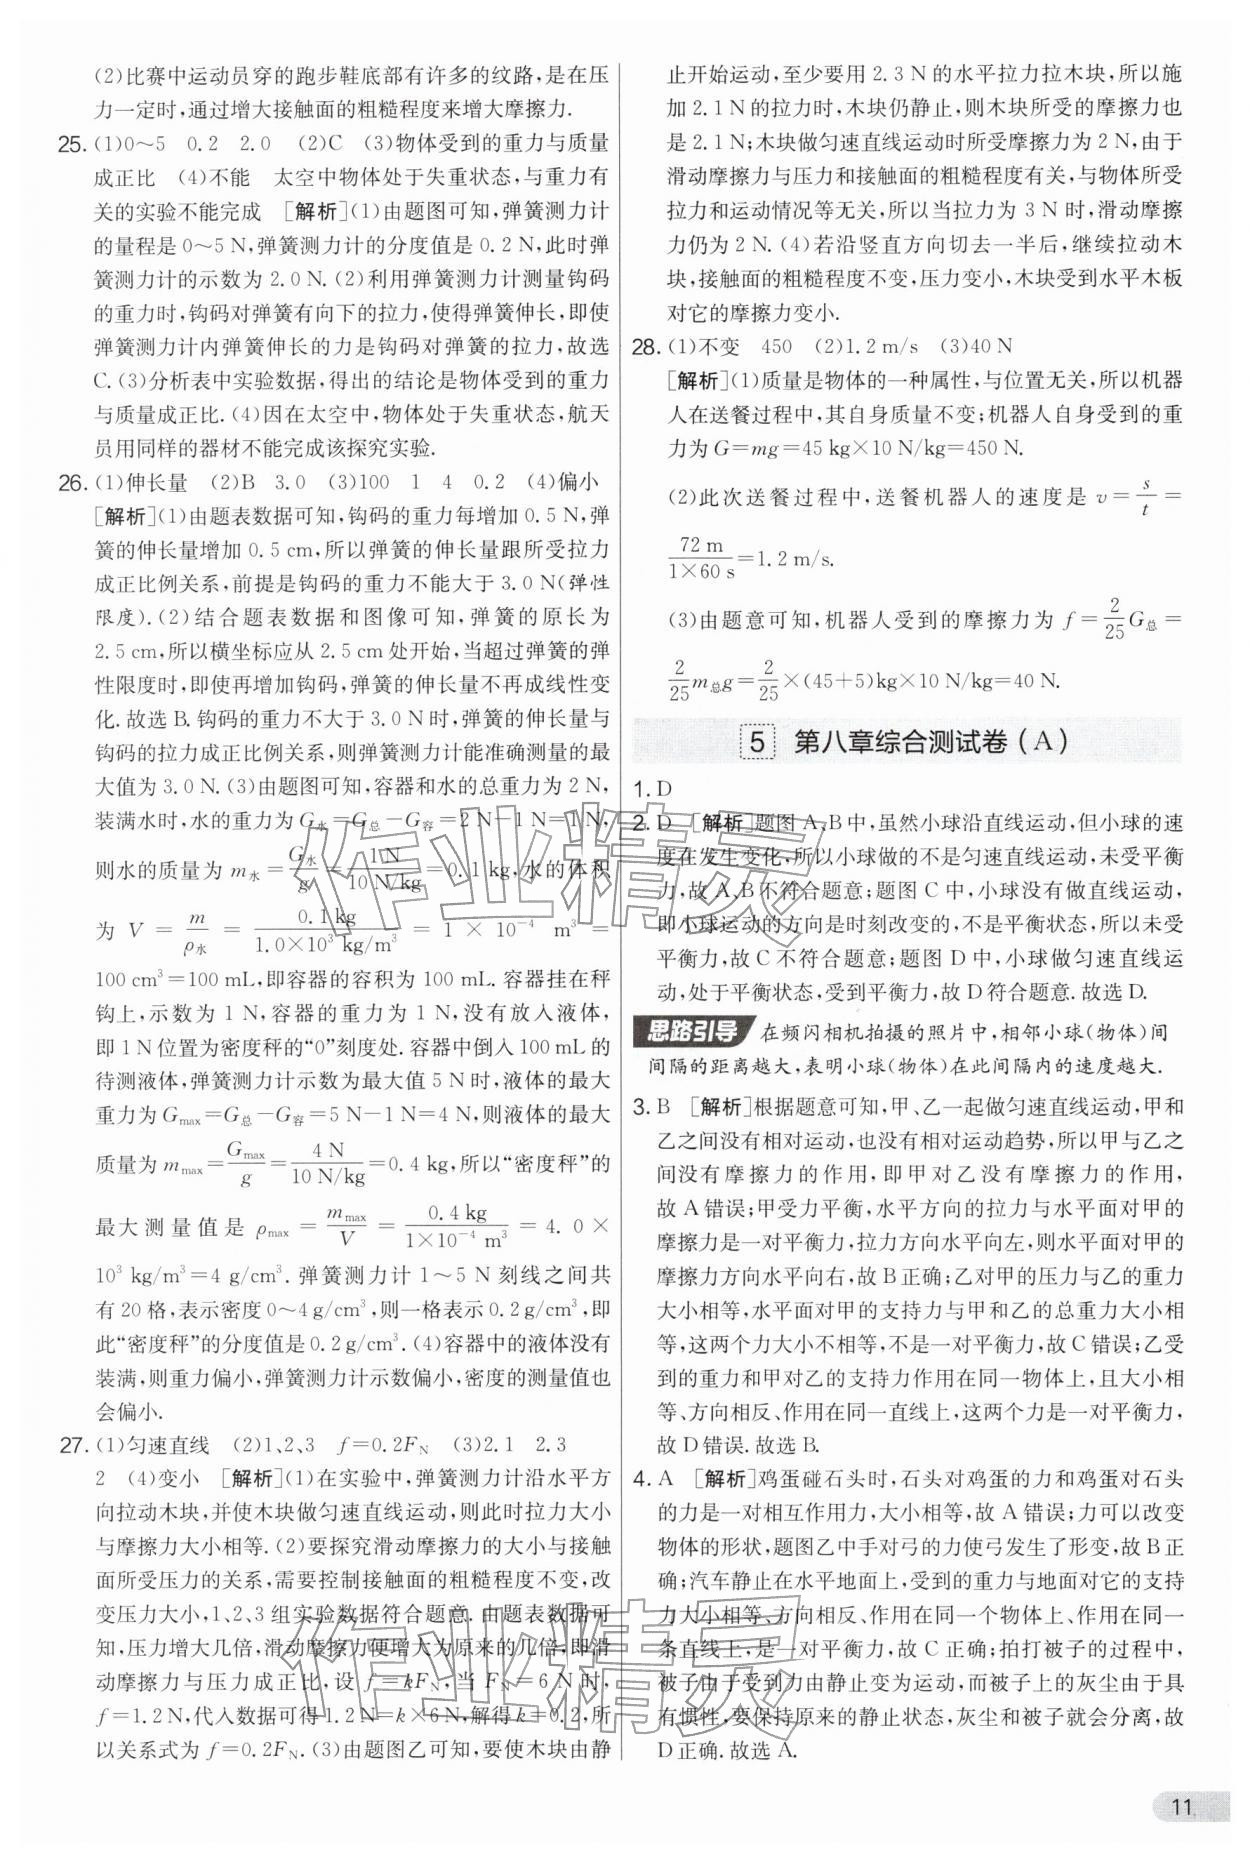 (2)比赛中运动员穿的跑步鞋底部有许多的纹路,是在压
力一定时,通过增大接触面的粗糙程度来增大摩擦力.
25. (1)0～5 0.2 2.0 (2)C (3)物体受到的重力与质量
成正比 (4)不能 太空中物体处于失重状态,与重力有
关的实验不能完成 [解析](1)由题图可知,弹簧测力计
的量程是0～5 N,弹簧测力计的分度值是0.2 N,此时弹
簧测力计的示数为2.0 N.(2)利用弹簧测力计测量钩码
的重力时,钩码对弹簧有向下的拉力,使得弹簧伸长,即使
弹簧测力计内弹簧伸长的力是钩码对弹簧的拉力,故选
C.(3)分析表中实验数据,得出的结论是物体受到的重力
与质量成正比.(4)因在太空中,物体处于失重状态,航天
员用同样的器材不能完成该探究实验.
26. (1)伸长量 (2)B 3.0 (3)100 1 4 0.2 (4)偏小
[解析](1)由题表数据可知,钩码的重力每增加0.5 N,弹
簧的伸长量增加0.5 cm,所以弹簧的伸长量跟所受拉力
成正比例关系,前提是钩码的重力不能大于3.0 N(弹性
限度).(2)结合题表数据和图像可知,弹簧的原长为
2.5 cm,所以横坐标应从2.5 cm处开始,当超过弹簧的弹
性限度时,即使再增加钩码,弹簧的伸长量不再成线性变
化.故选B.钩码的重力不大于3.0 N时,弹簧的伸长量与
钩码的拉力成正比例关系,则弹簧测力计能准确测量的最
大值为3.0 N.(3)由题图可知,容器和水的总重力为2 N,
装满水时,水的重力为G水=G总-G容=2 N-1 N=1 N,
则水的质量为m水=G水/g=1 N/10 N/kg=0.1 kg,水的体积
为V=m/ρ水=0.1 kg/1.0×10³ kg/m³=1×10⁻⁴ m³=
100 cm³=100 mL,即容器的容积为100 mL.容器挂在秤
钩上,示数为1 N,容器的重力为1 N,没有放入液体,
即1 N位置为密度秤的“0”刻度处.容器中倒入100 mL的
待测液体,弹簧测力计示数为最大值5 N时,液体的最大
重力为Gmax=G总-G容=5 N-1 N=4 N,则液体的最大
质量为mmax=Gmax/g=4 N/10 N/kg=0.4 kg,所以“密度秤”的
最大测量值是ρmax=mmax/V=0.4 kg/1×10⁻⁴ m³=4.0×
10³ kg/m³=4 g/cm³.弹簧测力计1～5 N刻线之间共
有20格,表示密度0～4 g/cm³,则一格表示0.2 g/cm³,即
此“密度秤”的分度值是0.2 g/cm³.(4)容器中的液体没有
装满,则重力偏小,弹簧测力计示数偏小,密度的测量值也
会偏小.
27. (1)匀速直线 (2)1、2、3 f=0.2FN (3)2.1 2.3
2 (4)变小 [解析](1)在实验中,弹簧测力计沿水平方
向拉动木块,并使木块做匀速直线运动,则此时拉力大小
与摩擦力大小相等.(2)要探究滑动摩擦力的大小与接触
面所受压力的关系,需要控制接触面的粗糙程度不变,改
变压力大小,1、2、3组实验数据符合题意.由题表数据可
知,压力增大几倍,滑动摩擦力便增大为原来的几倍,即滑
动摩擦力与压力成正比,设f=kFN,当FN=6 N时,
f=1.2 N,代入数据可得1.2 N=k×6 N,解得k=0.2,所
以关系式为f=0.2FN.(3)由题图乙可知,要使木块由静
止开始运动,至少要用2.3 N的水平拉力拉木块,所以施
加2.1 N的拉力时,木块仍静止,则木块所受的摩擦力也
是2.1 N;木块做匀速直线运动时所受摩擦力为2 N,由于
滑动摩擦力与压力和接触面的粗糙程度有关,与物体所受
拉力和运动情况等无关,所以当拉力为3 N时,滑动摩擦
力仍为2 N.(4)若沿竖直方向切去一半后,继续拉动木
块,接触面的粗糙程度不变,压力变小,木块受到水平木板
对它的摩擦力变小.
28. (1)不变 450 (2)1.2 m/s (3)40 N
[解析](1)质量是物体的一种属性,与位置无关,所以机器
人在送餐过程中,其自身质量不变;机器人自身受到的重
力为G=mg=45 kg×10 N/kg=450 N.
(2)此次送餐过程中,送餐机器人的速度是v=s/t=
72 m/1×60 s=1.2 m/s.
(3)由题意可知,机器人受到的摩擦力为f=2/25G总=
2/25m总g=2/25×(45+5)kg×10 N/kg=40 N.
5 第八章综合测试卷(A)
1. D
2. D [解析]题图A、B中,虽然小球沿直线运动,但小球的速
度在发生变化,所以小球做的不是匀速直线运动,未受平衡
力,故A、B不符合题意;题图C中,小球没有做直线运动,
即小球运动的方向是时刻改变的,不是平衡状态,所以未受
平衡力,故C不符合题意;题图D中,小球做匀速直线运
动,处于平衡状态,受到平衡力,故D符合题意.故选D.
思路引导 在频闪相机拍摄的照片中,相邻小球(物体)间
间隔的距离越大,表明小球(物体)在此间隔内的速度越大.
3. B [解析]根据题意可知,甲、乙一起做匀速直线运动,甲和
乙之间没有相对运动,也没有相对运动趋势,所以甲与乙之
间没有摩擦力的作用,即甲对乙没有摩擦力的作用,
故A错误;甲受力平衡,水平方向的拉力与水平面对甲的
摩擦力是一对平衡力,拉力方向水平向左,则水平面对甲的
摩擦力方向水平向右,故B正确;乙对甲的压力与乙的重力
大小相等,水平面对甲的支持力与甲和乙的总重力大小相
等,这两个力大小不相等,不是一对平衡力,故C错误;乙受
到的重力和甲对乙的支持力作用在同一物体上,且大小相
等、方向相反、作用在同一直线上,这两个力是一对平衡力,
故D错误.故选B.
4. A [解析]鸡蛋碰石头时,石头对鸡蛋的力和鸡蛋对石头
的力是一对相互作用力,大小相等,故A错误;力可以改变
物体的形状,题图乙中手对弓的力使弓发生了形变,故B正
确;汽车静止在水平地面上,受到的重力与地面对它的支持
力大小相等、方向相反、作用在同一个物体上、作用在同一
条直线上,是一对平衡力,故C正确;拍打被子的过程中,
被子由于受到力由静止变为运动,而被子上的灰尘由于具
有惯性,要保持原来的静止状态,灰尘和被子就会分离,故
D正确.故选A.
11
作业精灵
作业精灵